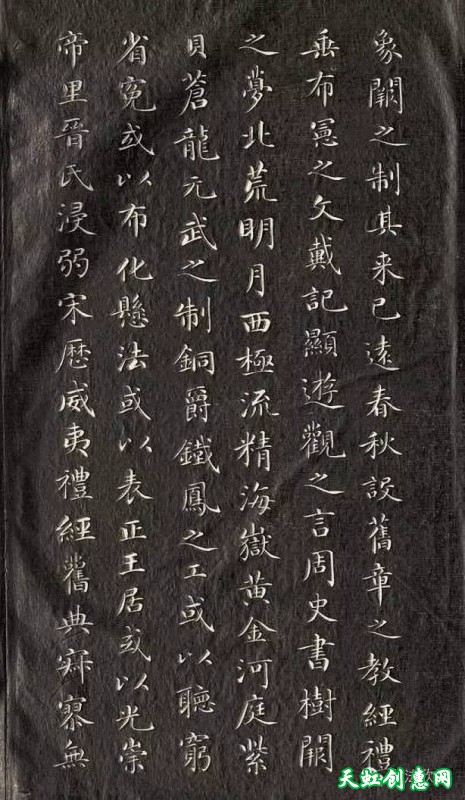 象闕之制其来已遠春秋設舊章之教經禮
垂布憲之文戴記顯遊觀之言周史書樹闕
之夢北荒明月西極流精海嶽黃金河庭紫
貝蒼龍元武之制銅爵鐵鳳之工或以聽窮
省冤或以布化懸法或以表正王居或以光崇
帝里晉氏浸弱宋歷威夷禮經舊典寂寥無
天虹创意网